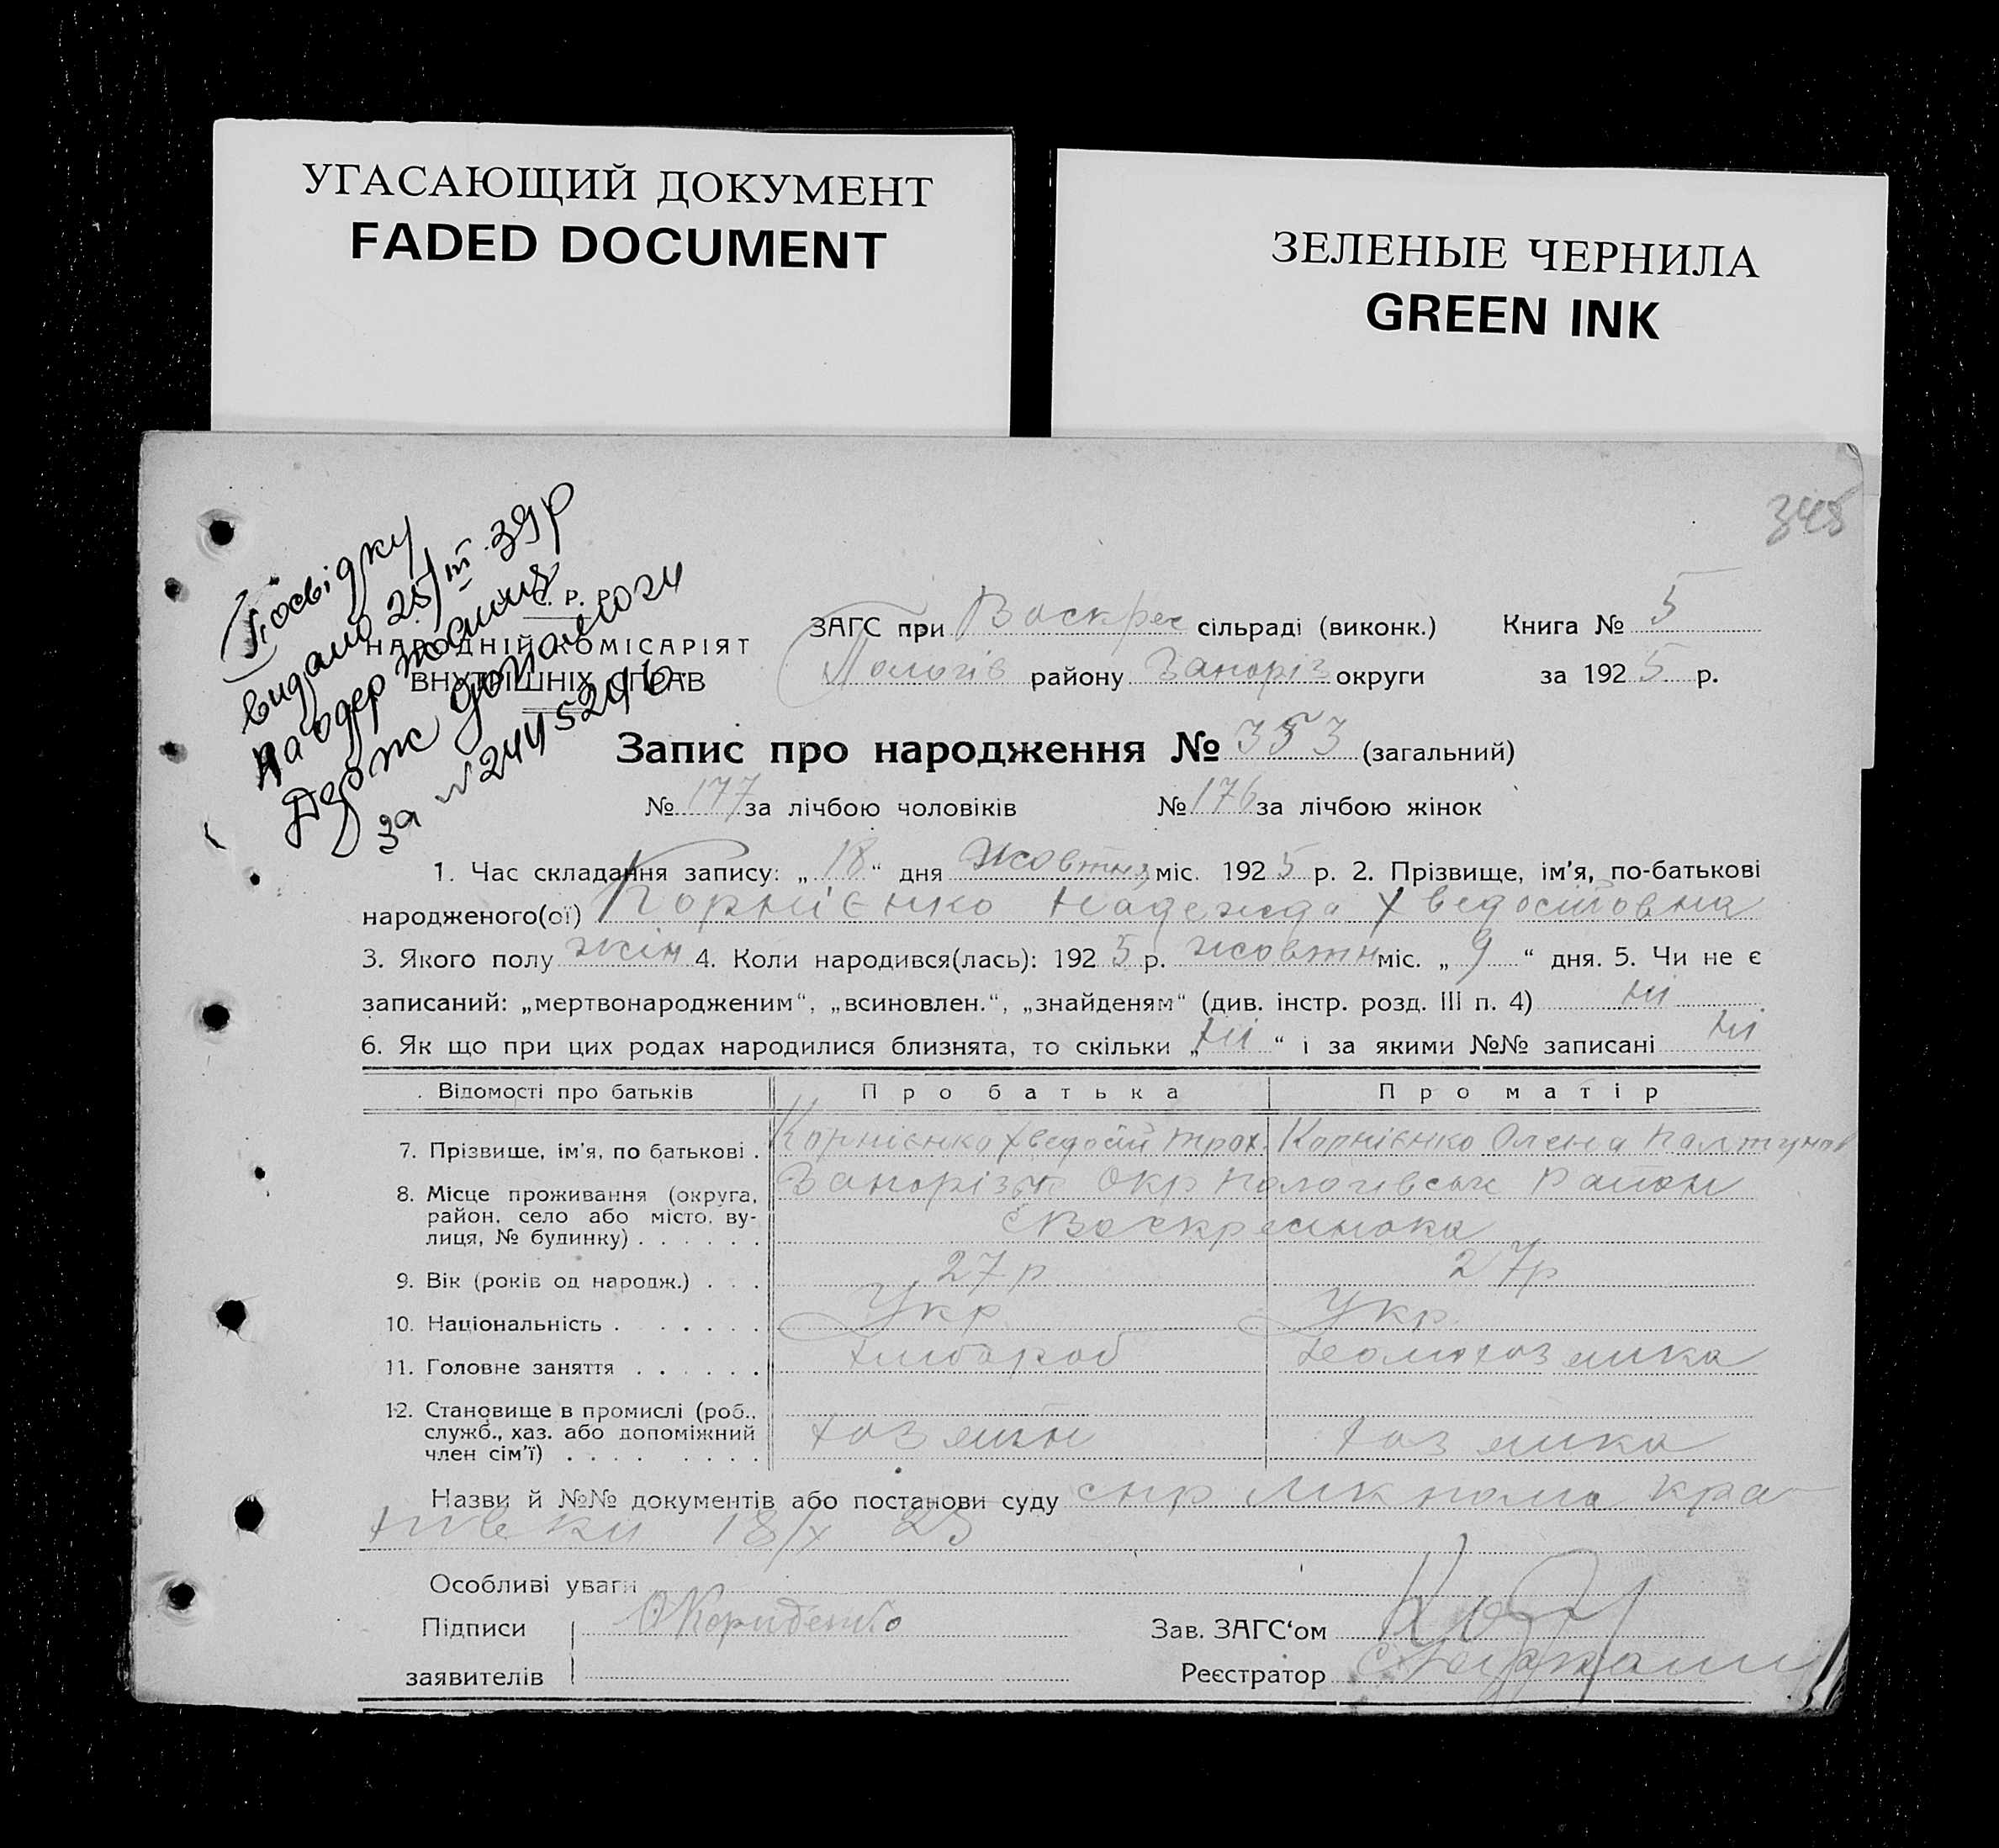 УГАСАЮЩИЙ ДОКУМЕНТ
FADED DOCUMENT
ЗЕЛЕНЫЕ ЧЕРНИЛА
GREEN INK
345
Посвідку
видано 25/III 39р
на одержання
Держ допомоги
за №
Р. Р.
НАРОДНІЙ КОМІСАРІЯТ
ВНУТРІШНІХ СПРАВ
ЗАГС при Воскрес сільраді (виконк.) Книга № 5
Пологів району Запоріз округи за 1925 р.
Запис про народження № 353 (загальний)
№ 177 за лічбою чоловіків № 176 за лічбою жінок
1. Час складання запису: „18“ дня Жовтня міс. 1925 р. 2. Прізвище, ім’я, по-батькові
народженого(ої) Корнієнко Надежда Хведосіовна
3. Якого полу жін 4. Коли народився(лась): 1925 р. жовтн міс. „9“ дня. 5. Чи не є
записаний: „мертвонародженим“, „всиновлен.“, „знайденям“ (див. інстр. розд. III п. 4) ні
6. Як що при цих родах народилися близнята, то скільки „ні“ і за якими №№ записані ні
Відомості про батьків Про батька Про матір
7. Прізвище, ім’я, по батькові . Корнієнко Хведосій Трох. Корнієнко Олена
8. Місце проживання (округа, район, село або місто, вулиця, № будинку) . . . . . . Запорізьк Окр Пологівськ Район
с Воскресинока
9. Вік (років од народж.) . . . 27р 27р
10. Національність . . . . . . . Укр Укр.
11. Головне заняття . . . . . . хлибороб домохозяика
12. Становище в промислі (роб., служб., хаз. або допоміжний член сім’ї) . . . . . . . . хозяин хозяика
Назви й №№ документів або постанови суду
18/X 25
Особливі уваги
Підписи
заявителів
Зав. ЗАГС‘ом
Реєстратор